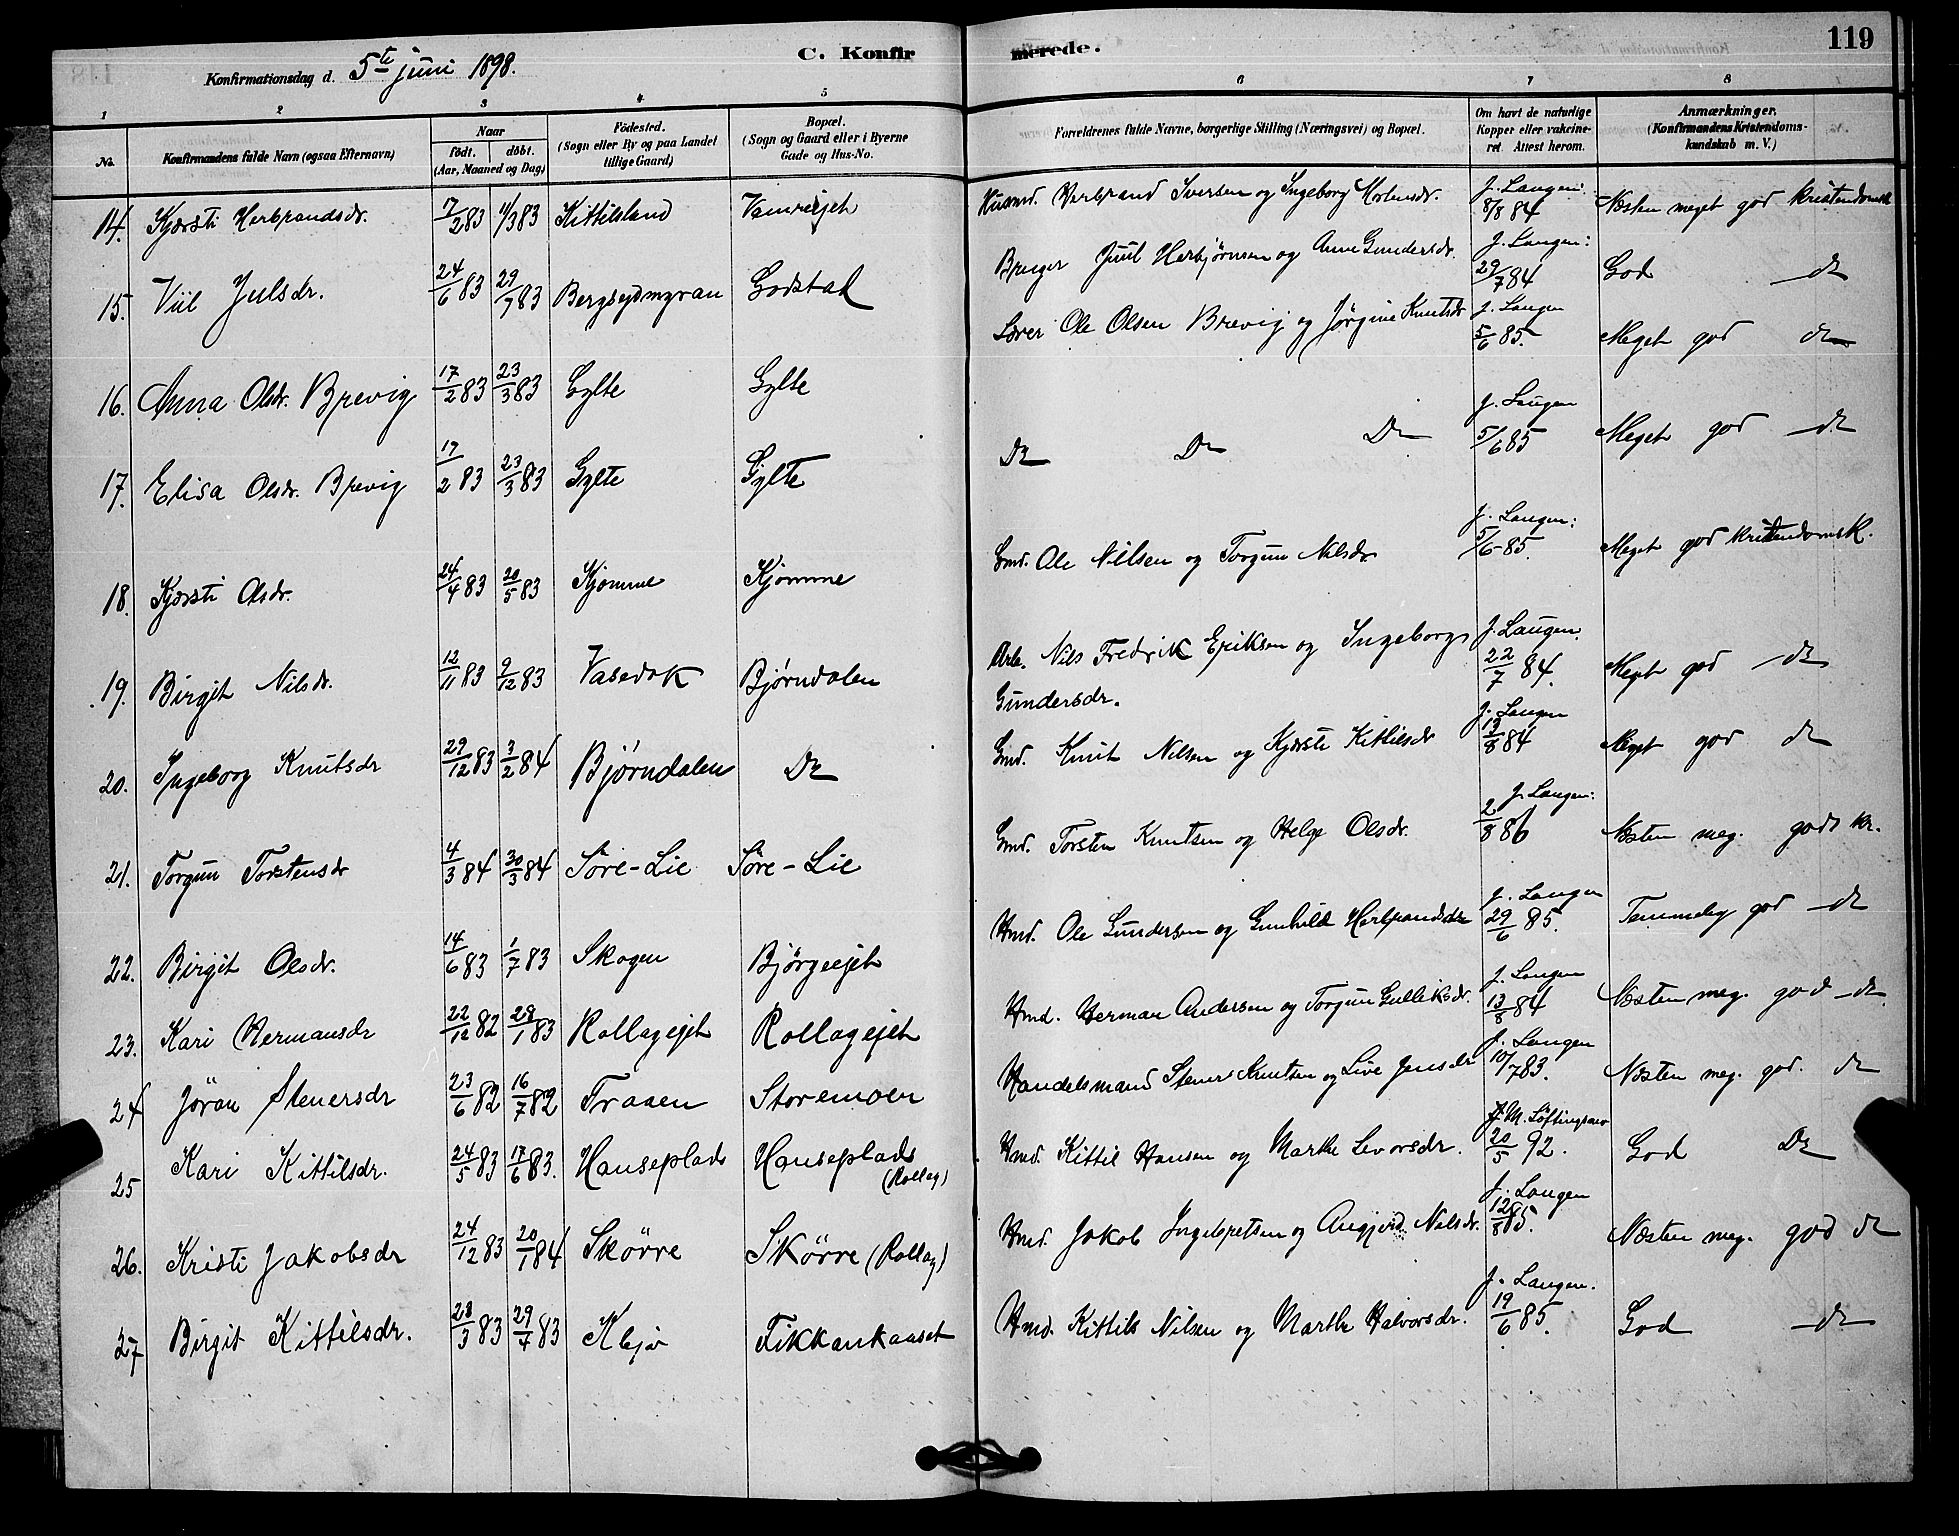 Konfirmationsdag d. 5te juni 1898. C. Konfirmerede. 119
1 2 3 4 5 6 7 8
No. Konfirmandens fulde Navn (ogsaa Efternavn) Naar født. døbt. (Aar, Maaned og Dag) Fødested. (Sogn eller By og paa Landet tillige Gaard) Bopæl. (Sogn og Gaard eller i Byerne Gade og Hus-No. Forældrenes fulde Navne, borgerlige Stilling (Næringsvei) og Bopæl. Om havt de naturlige Kopper eller vakcineret. Attest herom. Anmærkninger. (Konfirmandens Kristendomskundskab m. V.)
14. Kjersti Herbrandsdr. 7/2 83 4/3 83 Kittilsland Husmd. Herbrand Iversen og Ingeborg Mortensdr. J. Langen: 8/8 84 Næsten meget god kristendomsk
15. Viil Julsdr. 24/6 83 29/7 83 Bergsejdmyran Godstad Bruger Juul Herbjørnsen og Anne Gundersdr. J. Langen: 29/7 84 God do
16. Anna Olsdr. Brevig 17/2 83 23/3 83 Gylte Gylte Lærer Ole Olsen Brevig og Jørgine Knutsdr J. Langen 5/6 85. Meget god do
17. Elisa Olsdr. Brevig 17/2 83 23/3 83 Gylte Gylte Do Do Do J. Langen 5/6 85 Meget god do
18. Kjersti Olsdr. 24/4 83 20/5 83 Kjømme Kjømme Gmd. Ole Nilsen og Torgun Nilsdr J. Langen: 5/6 85. Meget god kristendomsk.
19. Birgit Nilsdr. 12/11 83 9/12 83 Vasedok Bjørndalen Arb. Nils Fredrik Eriksen og Ingeborg Gundersdr. J. Langen. 22/7 84. Meget god do
20. Ingeborg Knutsdr 29/12 83 3/2 84 Bjørndalen Do Gmd. Knut Nilsen og Kjersti Kittilsdr J. Langen 13/8 84 Meget god do
21. Torgun Torstensdr 4/3 84 30/3 84 Søre-Lie Søre-Lie Gmd. Torsten Knutsen og Helge Olsdr. J. Langen: 2/8 86 Næsten meg. god kr.
22. Birgit Olsdr. 14/6 83 1/7 83 Skogen Bjørgeejet Hmd. Ole Gundersen og Gunhild Herbrandsdr J. Langen 29/6 85. Temmelig god do
23. Kari Hermansdr 22/12 82 28/1 83 Rollagejet Rollagejet Hmd. Herman Andersen og Torgun Gulliksdr. J. Langen 13/8 84 Næsten meg. god do
24 Jøran Stenersdr 23/6 82 16/7 82 Traaen Storemoen Handelsmand Stener Knutsen og Live Jensdr J. Langen 10/7 83. Næsten meg. god. do
25 Kari Kittilsdr. 24/5 83 17/6 83. Hanseplads Hanseplads (Rollag) Hmd. Kittil Hansen og Marthe Levorsdr. J. M. 20/5 92. God Do
26. Kristi Jakobsdr 24/12 83 20/1 84 Skørre Skørre (Rollag) Hmd. Jakob Ingebretsen og Angjerd Nilsdr. J. Langen 12/8 85. Næsten meg. god do
27 Birgit Kittilsdr. 28/3 83 29/7 83 Fikkankaaset Hmd. Kittil Nilsen og Marthe Halvorsdr. J. Langen. 19/6 85. God do